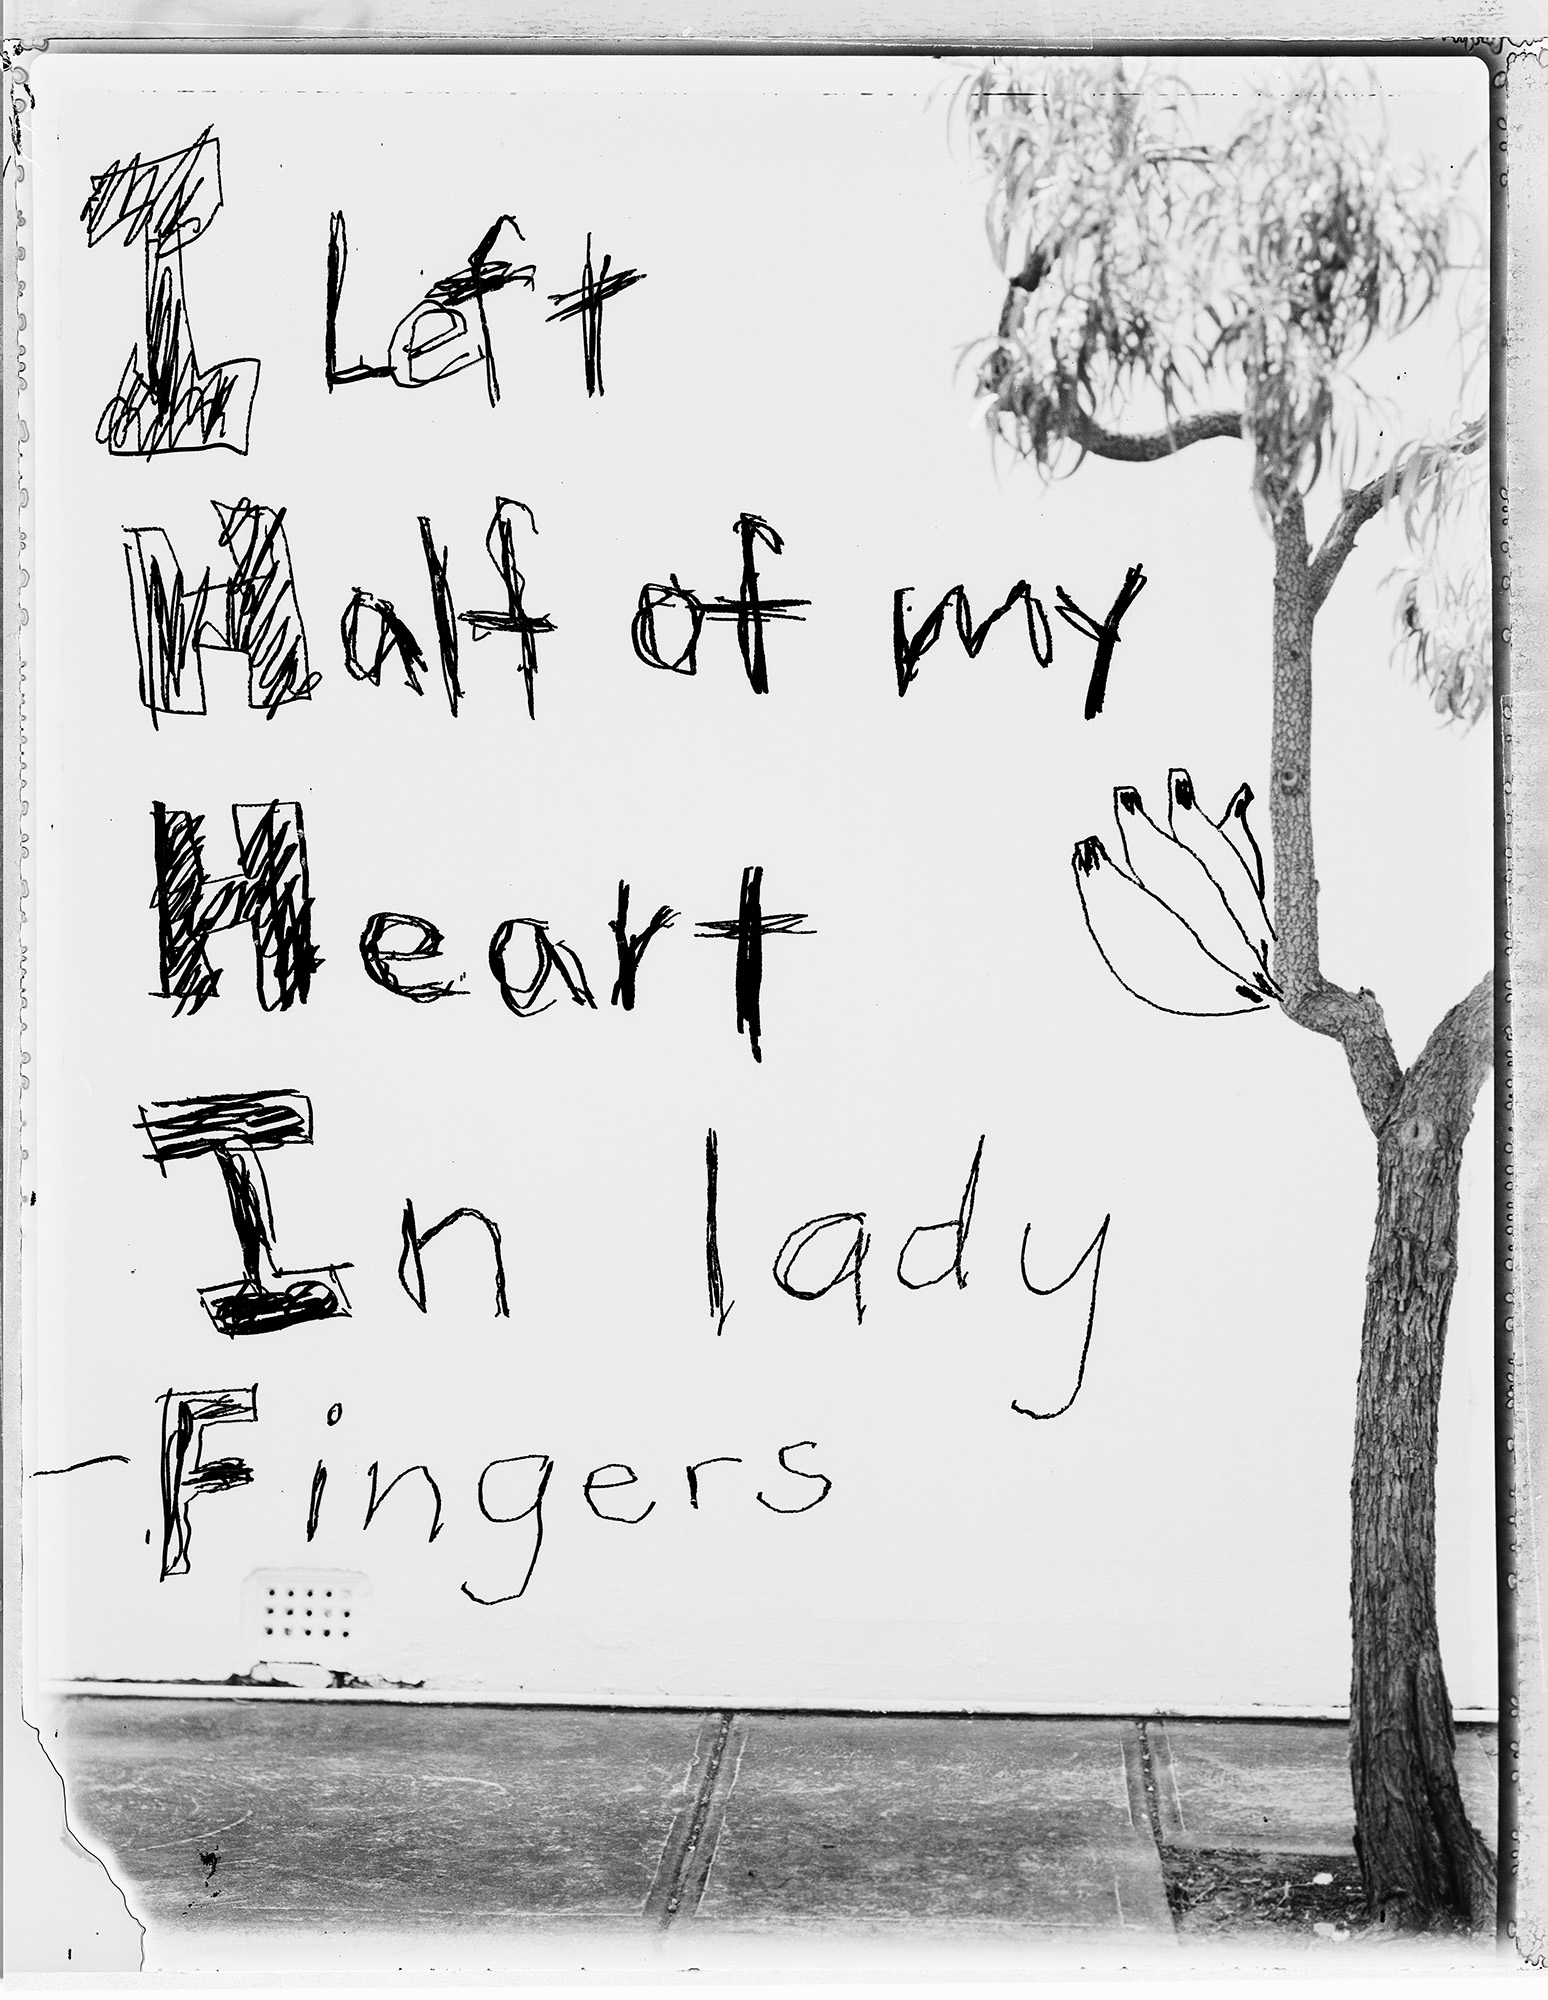 I Left
Half of my
Heart
In lady
Fingers